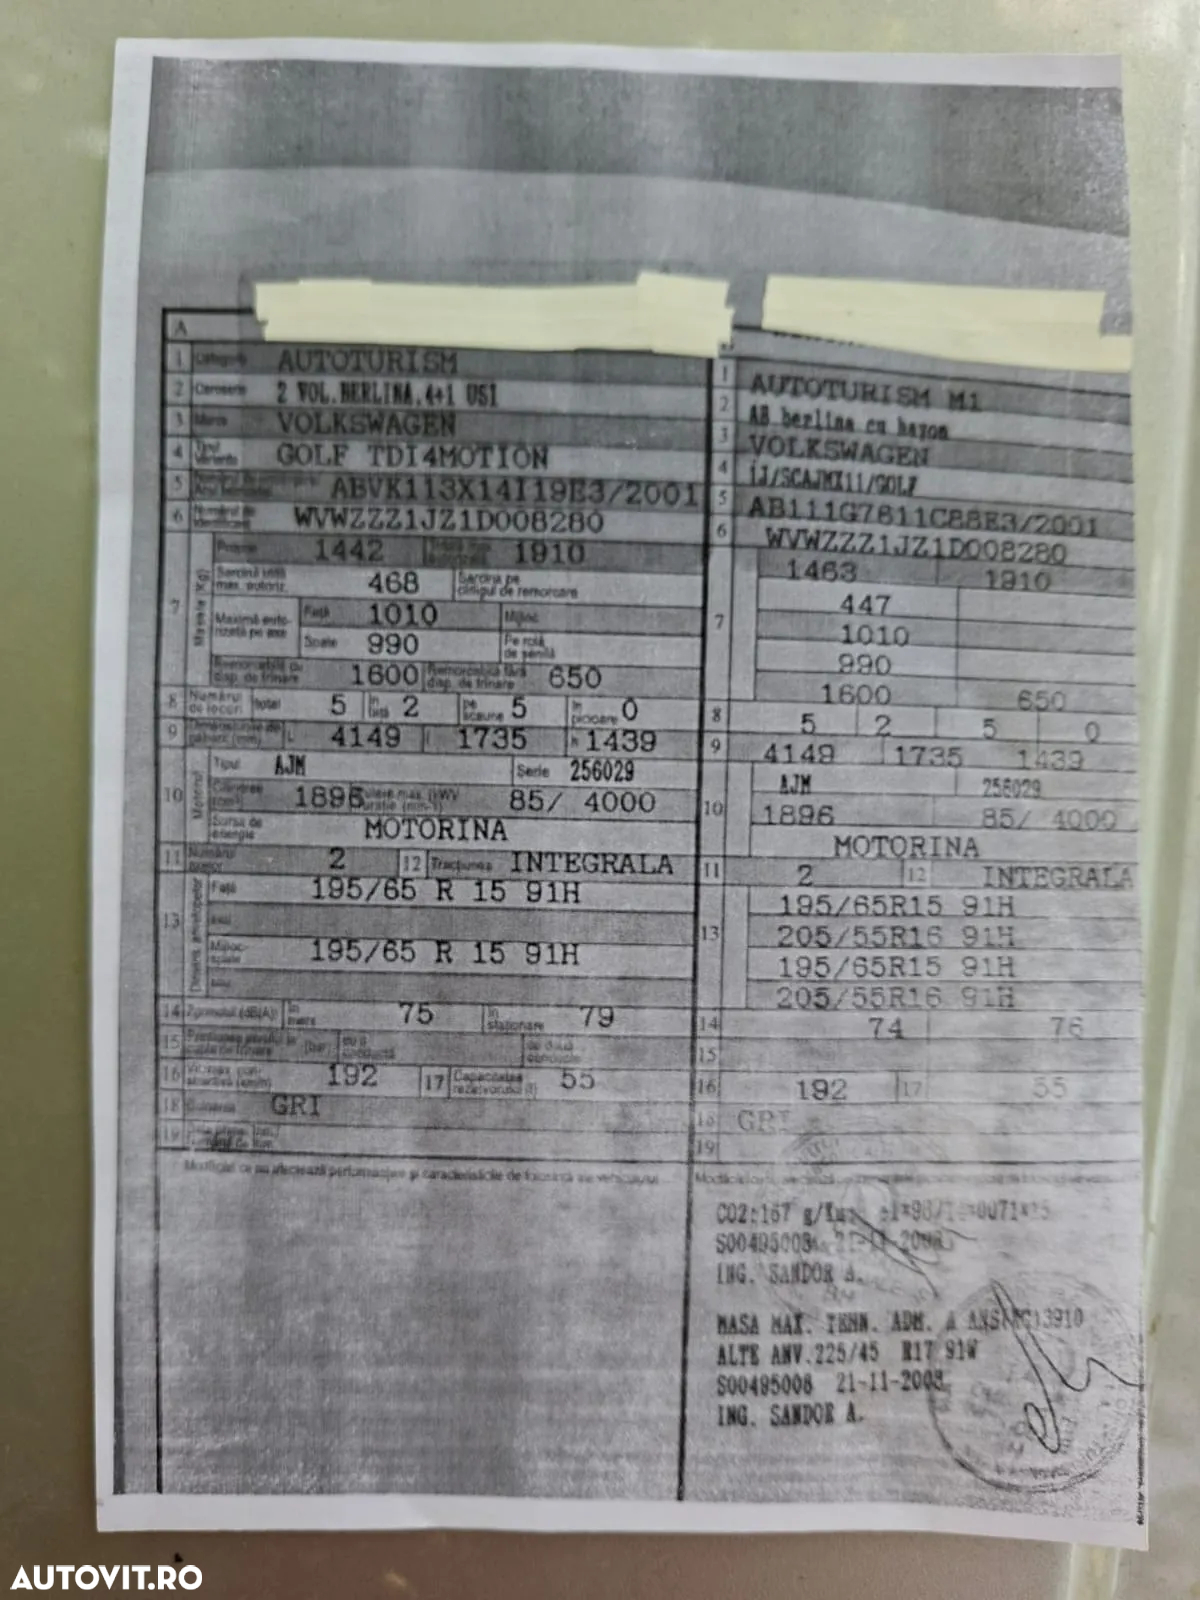 A
1 Categoria AUTOTURISM
2 Caroserie 2 VOL.BERLINA,4+1 USI
3 Marca VOLKSWAGEN
4 Tipul Varianta GOLF TDI4MOTION
5 ABVK113X14I19E3/2001
6 Numărul de identificare WVWZZZ1JZ1D008280
7 Masele (Kg) Proprie 1442 1910
Sarcină utilă max. autoriz. 468 Sarcina pe cârligul de remorcare
Maximă auto-rizată pe axe Față 1010 Mijloc
Spate 990 Pe rolă de șenilă
Remorcabilă cu disp. de frînare 1600 Remorcabilă fără disp. de frînare 650
8 Numărul de locuri total 5 în față 2 pe scaune 5 în picioare 0
9 Dimensiunile de gabarit (mm) L 4149 l 1735 h 1439
10 Motorul Tipul AJM Serie 256029
Cilindree (cm³) 1896 85/ 4000
Sursa de energie MOTORINA
11 Numărul 2 12 Tracțiunea INTEGRALA
13 Față 195/65 R 15 91H
sau
Mijloc-spate 195/65 R 15 91H
sau
14 Zgomotul (dB(A)) în mers 75 în staționare 79
15 (bar) cu o conductă cu două conducte
16 192 17 Capacitatea rezervorului (l) 55
18 Culoarea GRI
19
Modificări ce nu afectează performanțele și caracteristicile de folosință ale vehiculului
1 AUTOTURISM M1
2 AB berlina cu hayon
3 VOLKSWAGEN
4 1J/SCAJMX11/GOLF
5 AB111G7811C88E3/2001
6 WVWZZZ1JZ1D008280
7 1463 1910
447
1010
990
1600 650
8 5 2 5 0
9 4149 1735 1439
10 AJM 256029
1896 85/ 4000
MOTORINA
11 2 12 INTEGRALA
13 195/65R15 91H
205/55R16 91H
195/65R15 91H
205/55R16 91H
14 74 76
15
16 192 17 55
18 GRI
19
CO2:167 g/Km;
S00495008 21-11-2008
ING. SANDOR A.
MASA MAX. TEHN. ADM. A ANS(KG)3910
ALTE ANV.225/45 R17 91W
S00495008 21-11-2008
ING. SANDOR A.
AUTOVIT.RO